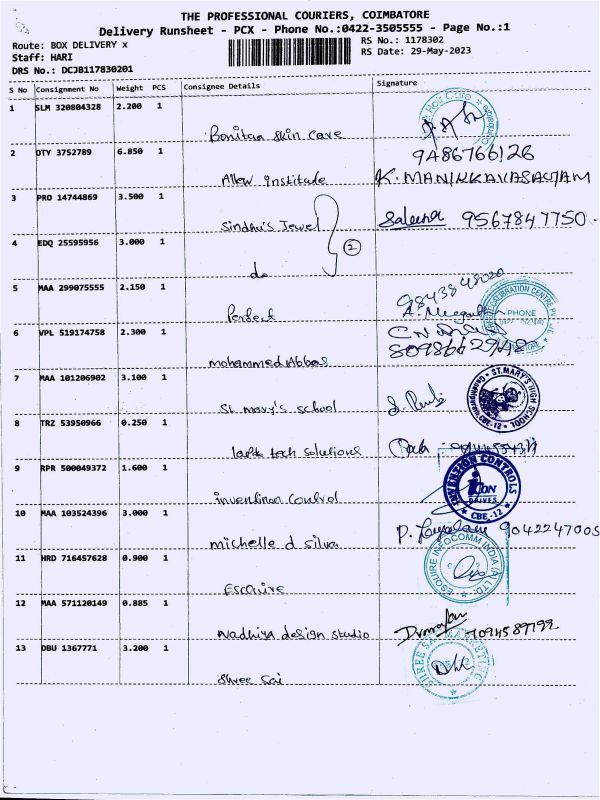 THE PROFESSIONAL COURIERS, COIMBATORE
Delivery Runsheet - PCX - Phone No.:0422-3505555 - Page No.:1
Route: BOX DELIVERY x
RS No.: 1178302
Staff: HARI
RS Date: 29-May-2023
DRS No.: DCJB117830201
S No Consignment No Weight PCS Consignee Details Signature
1 SLM 320804328 2.200 1
Bonitaa skin care
2 DTY 3752789 6.850 1 9486766126
Allen institute K. MANIKKAVASAGAM
3 PRO 14744869 3.500 1
Sindhu's Jewel Saleena 9567847750.
4 EDQ 25595956 3.000 1 2
do
5 MAA 299075555 2.150 1
Perfect
CALIBRATION CENTRE
PHONE
6 VPL 519174758 2.300 1
Mohammed Abbas
7 MAA 101206902 3.100 1
ST.MARY'S HIGH SCHOOL
CBE-12
St. Mary's school
8 TRZ 53950966 0.250 1
tech solutions
9 RPR 500049372 1.600 1
INVENSION CONTROLS
ICON
DRIVES
CBE-12
invention control
10 MAA 103524396 3.000 1
michelle d silva 9042247005
11 HRD 716457628 0.900 1
ESQUIRE INFOCOMM INDIA (P) LTD.
Esquire
12 MAA 571120149 0.885 1
Nadhiya design studio
13 DBU 1367771 3.200 1
SHREE SAI MARKETING
Shree Sai